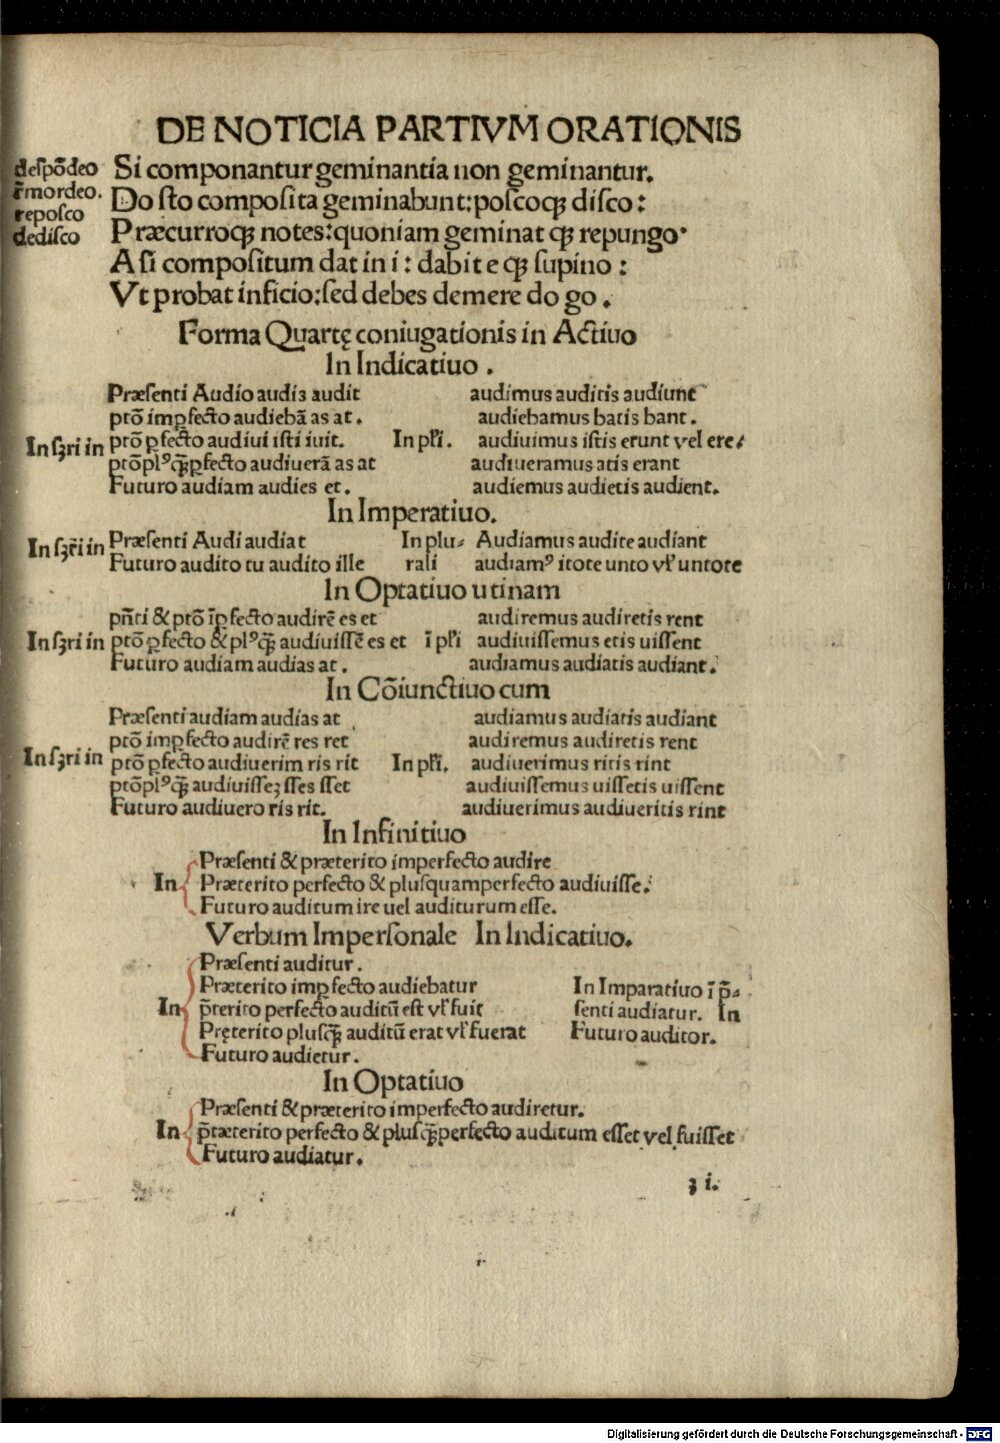 DE NOTICIA PARTIVM ORATIONIS
despõdeo
r̃mordeo.
reposco
dedisco
Si componantur geminantia non geminantur.
Do sto composita geminabunt: poscoqꝫ disco:
Præcurroqꝫ notes: quoniam geminat qꝫ repungo.
A si compositum dat in i: dabit e qꝫ supino:
Vt probat inficio: sed debes demere do go.
Forma Quartę coniugationis in Actiuo
In Indicatiuo.
In sꝫri in
Præsenti Audio audis audit audimus auditis audiunt
ptõ imꝑfecto audiebã as at. audiebamus batis bant.
ptõ ꝑfecto audiui isti iuit. In pl̃i. audiuimus istis erunt vel ere⸗
ptõplꝰqꝫ̃ꝑfecto audiuerã as at audiueramus atis erant
Futuro audiam audies et. audiemus audietis audient.
In Imperatiuo.
In sꝫr̃i in
Præsenti Audi audiat In plu⸗ Audiamus audite audiant
Futuro audito tu audito ille rali audiamꝰ itote unto vl̃ untote
In Optatiuo utinam
In sꝫri in
pñti & ptõ ĩꝑfecto audirẽ es et audiremus audiretis rent
ptõ ꝑfecto & plꝰqꝫ̃ audiuissẽ es et ĩ pl̃i audiuissemus etis uissent
Futuro audiam audias at. audiamus audiatis audiant.
In Cõiunctiuo cum
In sꝫri in
Præsenti audiam audias at audiamus audiatis audiant
ptõ imꝑfecto audirẽ res ret audiremus audiretis rent
ptõ ꝑfecto audiuerim ris rit In pl̃i. audiuerimus ritis rint
ptõplꝰqꝫ̃ audiuisseꝫ sses sset audiuissemus uissetis uissent
Futuro audiuero ris rit. audiuerimus audiueritis rint
In Infinitiuo
In
Præsenti & præterito imperfecto audire
Præterito perfecto & plusquamperfecto audiuisse.
Futuro auditum ire uel auditurum esse.
Verbum Impersonale In Indicatiuo.
In
Præsenti auditur.
Præterito imꝑfecto audiebatur In Imparatiuo ĩ p̃⸗
p̃terito perfecto auditũ est vl̃ fuit senti audiatur. In
Pręterito plusqꝫ̃ auditũ erat vl̃ fuerat Futuro auditor.
Futuro audietur.
In Optatiuo
In
Præsenti & præterito imperfecto audiretur.
p̃træterito perfecto & plusqꝫ̃perfecto auditum esset vel fuisset
Futuro audiatur.
ꝫ i.
Digitalisierung gefördert durch die Deutsche Forschungsgemeinschaft - DFG